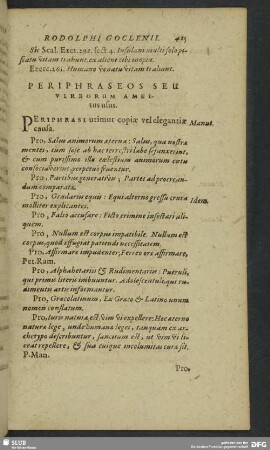 RODOLPHI GOCLENII. 425
Sic Scal. Exer. 292. sect. 4. Insulani multi solo pi-
scatu vitam trahunt, ex alieni cibi inopia.
Exerc. 261. Humano venatu vitam trahunt.
PERIPHRASEOS SEU
VERBORUM AMBI-
tus usus.
PERIPHRASI utimur copiæ vel elegantiæ Manut.
causa.
Pro, Salus animorum æterna: Salus, qua nostra
mentes, cum suæ ab hac terrestri labe sejunxerint,
& cum purissimo illo cœlestium animorum cœtu
consociaverint perpetuo fruentur.
Pro, Partibus generativis; Partes ad procrean-
dum comparatæ.
Pro, Gradarius equus: Equi alternis gressu crura Idem.
molliter explicantes.
Pro, Falso accusare: Ficto crimine insectari ali-
quem.
Pro, Nullum est corpus impatibile. Nullum est
corpus, quod effugiat patiendi necessitatem.
Pro, Affirmare impudenter; Ferreo ore affirmare,
Pet. Ram.
Pro, Alphabetariis & Rudimentariis: Pueruli,
qui primis literis imbuuntur. Adolescentuli, qui ru-
dimentis artis informantur.
Pro, Græcolatinum, Ex Græco & Latino unum
nomen constatum.
Pro, Juris naturæ est, vim vi expellere: Hoc æterna
naturæ lege, unde humanæ leges, tanquam ex ar-
chetypo describuntur, sancitum est, ut vim vi li-
ceat repellere, & suæ cuique incolumitas curæ sit.
P. Man.
Pro,
SLUB
Wir führen Wissen.
gefördert von der
Deutschen Forschungsgemeinschaft